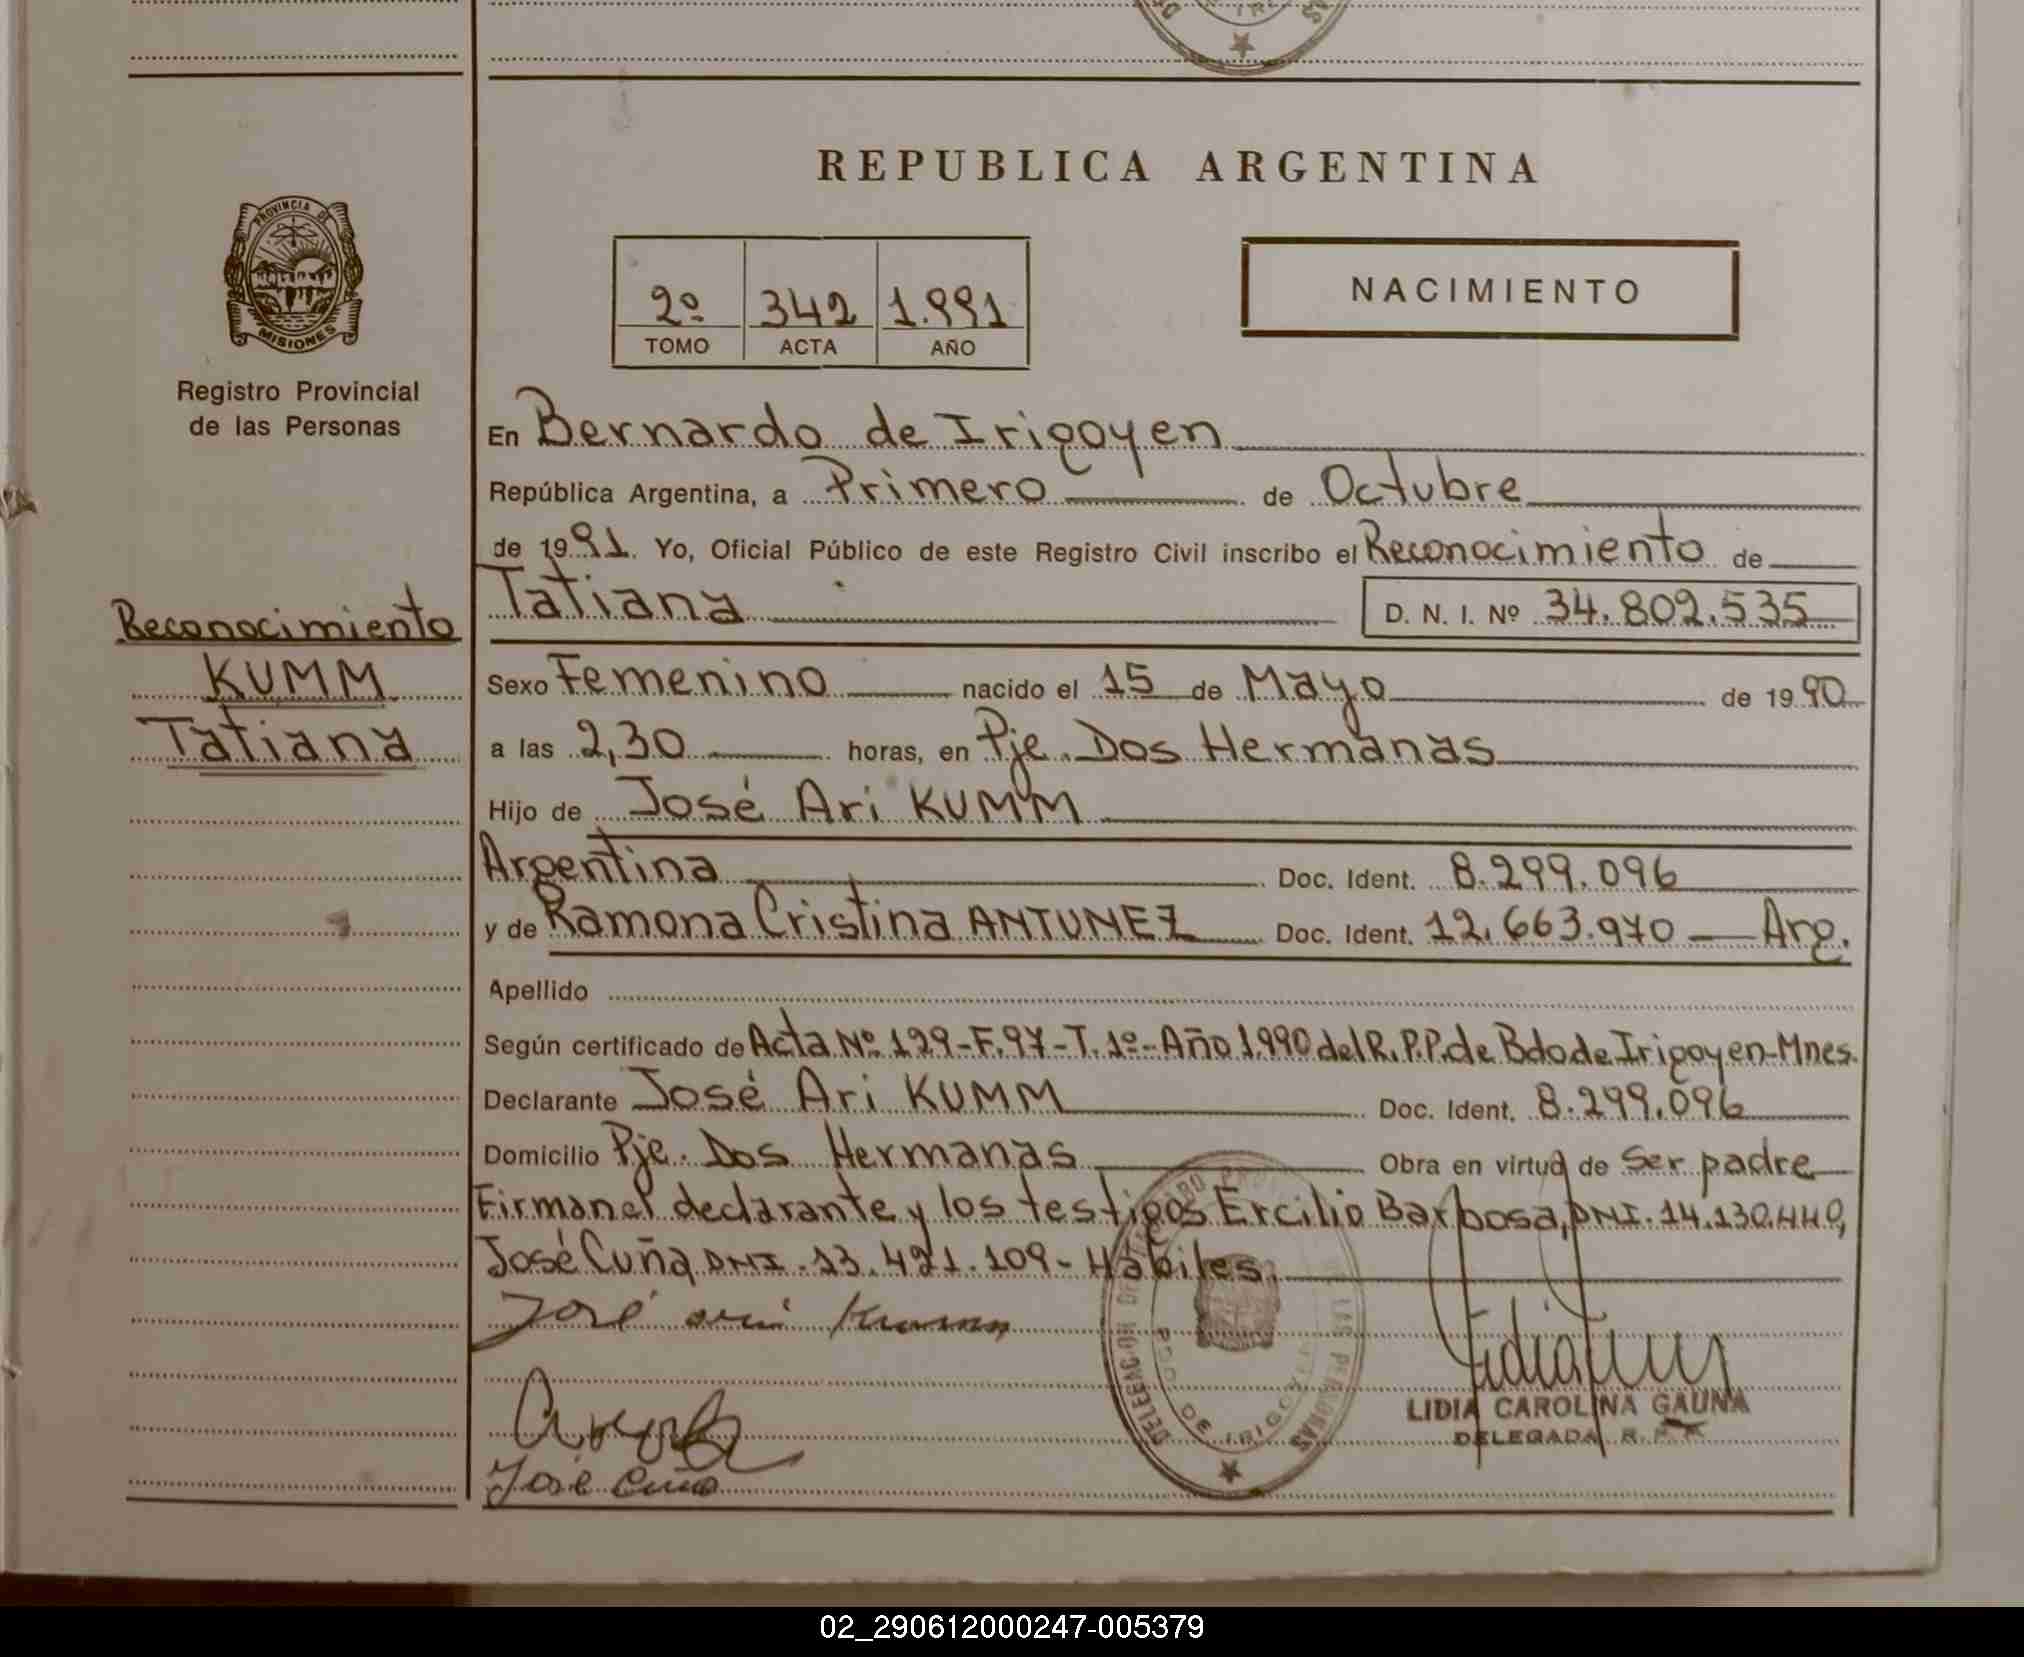 REPUBLICA ARGENTINA
PROVINCIA DE
MISIONES
Registro Provincial
de las Personas
2º 342 1.991
TOMO ACTA AÑO
NACIMIENTO
En Bernardo de Irigoyen
República Argentina, a Primero de Octubre
de 1991. Yo, Oficial Público de este Registro Civil inscribo el Reconocimiento de
Tatiana D. N. I. Nº 34.802.535
Reconocimiento
KUMM
Tatiana
Sexo Femenino nacido el 15 de Mayo de 1990
a las 2,30 horas, en Pje. Dos Hermanas
Hijo de José Ari KUMM
Argentina Doc. Ident. 8.299.096
y de Ramona Cristina ANTUNEZ Doc. Ident. 12.663.970 — Arg.
Apellido
Según certificado de Acta Nº 129-F.97-T.1º-Año 1.990 del R.P.P. de Bdo de Irigoyen-Mnes.
Declarante José Ari KUMM Doc. Ident. 8.299.096
Domicilio Pje. Dos Hermanas Obra en virtud de Ser padre
Firman el declarante y los testigos Ercilio Barbosa, DNI. 14.130.440,
José Cuña DNI. 13.421.109 - Hábiles.
José ari Kumm
José Cuña
LIDIA CAROLINA GAUNA
DELEGADA R.
DELEGACION DE
LAS PERSONAS
BDO DE IRIGOYEN
02_290612000247-005379